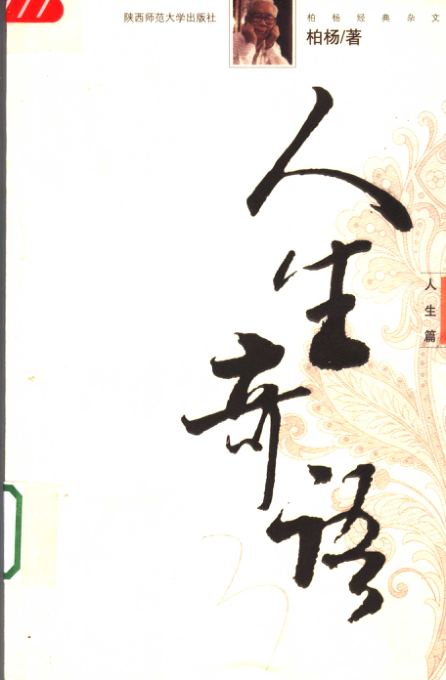 陕西师范大学出版社
柏杨经典杂文
柏杨/著
人生奇语
人生篇